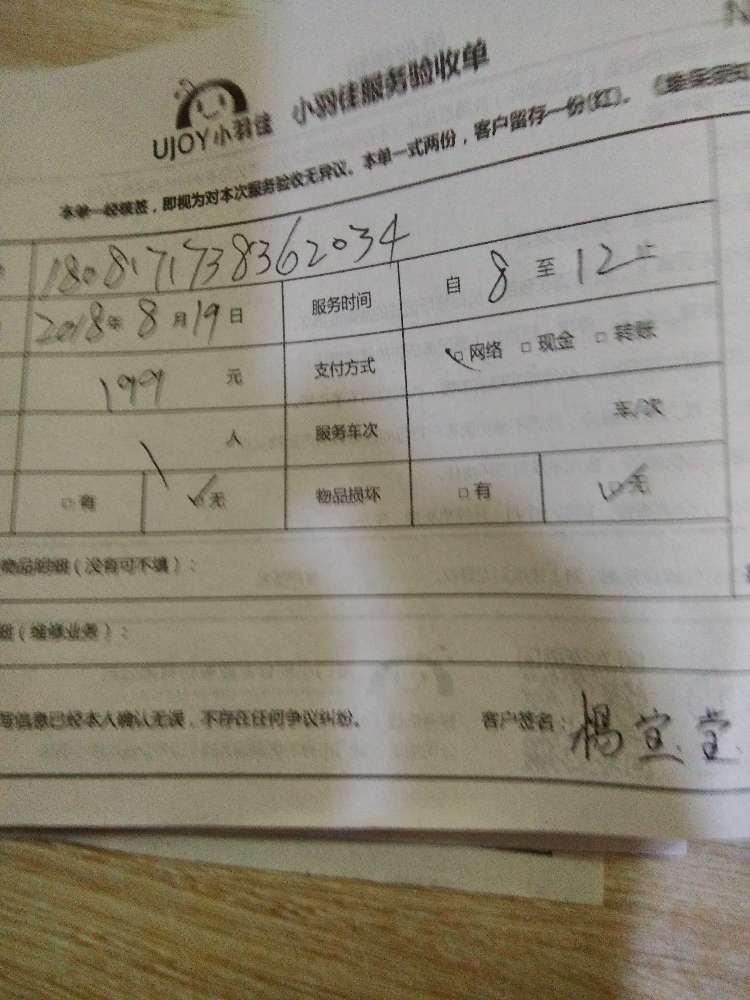 UJOY小羽佳 小羽佳服务验收单
本单一经核签，即视为对本次服务验收无异议。本单一式两份，客户留存一份(红)。
1808171738362034
2018年8月19日 服务时间 自 8 至 12 止
199 元 支付方式 □网络 □现金 □转账
人 服务车次 车/次
□有 □无 物品损坏 □有 □无
物品明细（没有可不填）：
（维修业务）：
写信息已经本人确认无误，不存在任何争议纠纷。 客户签名：杨宜堂